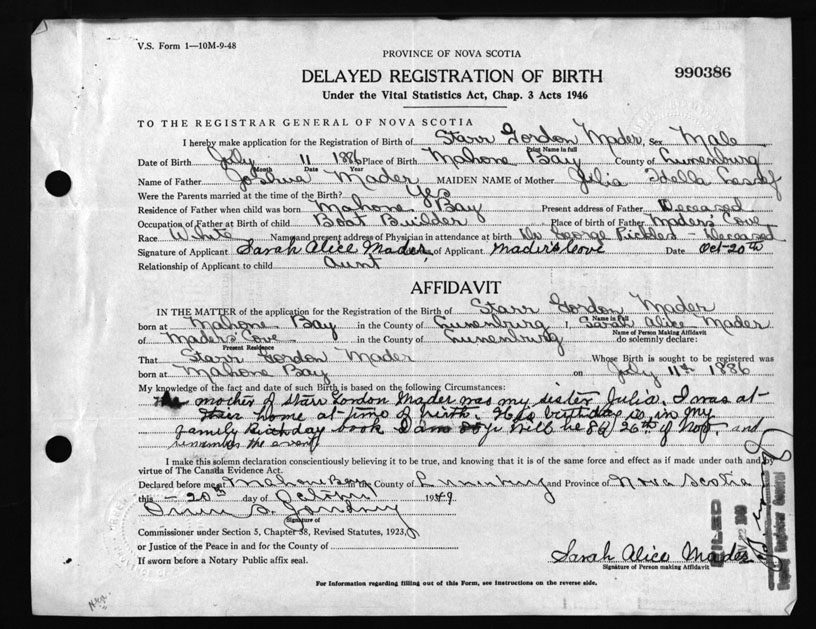 V.S. Form 1—10M-9-48
PROVINCE OF NOVA SCOTIA
DELAYED REGISTRATION OF BIRTH 990386
Under the Vital Statistics Act, Chap. 3 Acts 1946
TO THE REGISTRAR GENERAL OF NOVA SCOTIA
I hereby make application for the Registration of Birth of Starr Gordon Mader, Sex Male
Print Name in full
Date of Birth July 11 1886 Place of Birth Mahone Bay County of Lunenburg
Month Date Year
Name of Father Joshua Mader MAIDEN NAME of Mother Julia
Were the Parents married at the time of Birth? Yes
Residence of Father when child was born Mahone Bay Present address of Father Deceased
Occupation of Father at Birth of Child Boat Builder Place of birth of Father Maders Cove
Race White Name and present address of Physician in attendance at birth Dr George Pickles - Deceased
Signature of Applicant Sarah Alice Mader, of Applicant Mader's Cove Date Oct-20th
Relationship of Applicant to child Aunt
AFFIDAVIT
IN THE MATTER of the application for the Registration of the Birth of Starr Gordon Mader
Name in Full
born at Mahone Bay in the County of Lunenburg I, Sarah Alice Mader
Name of Person Making Affidavit
of Maders Cove in the County of Lunenburg do solemnly declare:
Present Residence
That Starr Gordon Mader Whose Birth is sought to be registered was
born at Mahone Bay on July 11th 1886
My knowledge of the fact and date of such Birth is based on the following Circumstances:
The mother of Starr Gordon Mader was my sister Julia. I was at
their home at time of birth. His birthday is in my
family Birthday book I am yr will be 89 26th of Nov. and
remember the event
I make this solemn declaration conscientiously believing it to be true, and knowing that it is of the same force and effect as if made under oath and by
virtue of The Canada Evidence Act.
Declared before me at Mahone Bay County of Lunenburg and Province of Nova Scotia
this - 20th day of October 1949
Signature of
Commissioner under Section 5, Chapter 38, Revised Statutes, 1923,
or Justice of the Peace in and for the County of
If sworn before a Notary Public affix seal.
Sarah Alice Mader
Signature of Person making Affidavit
FILED
For Information regarding filling out of this Form, see Instructions on the reverse side.